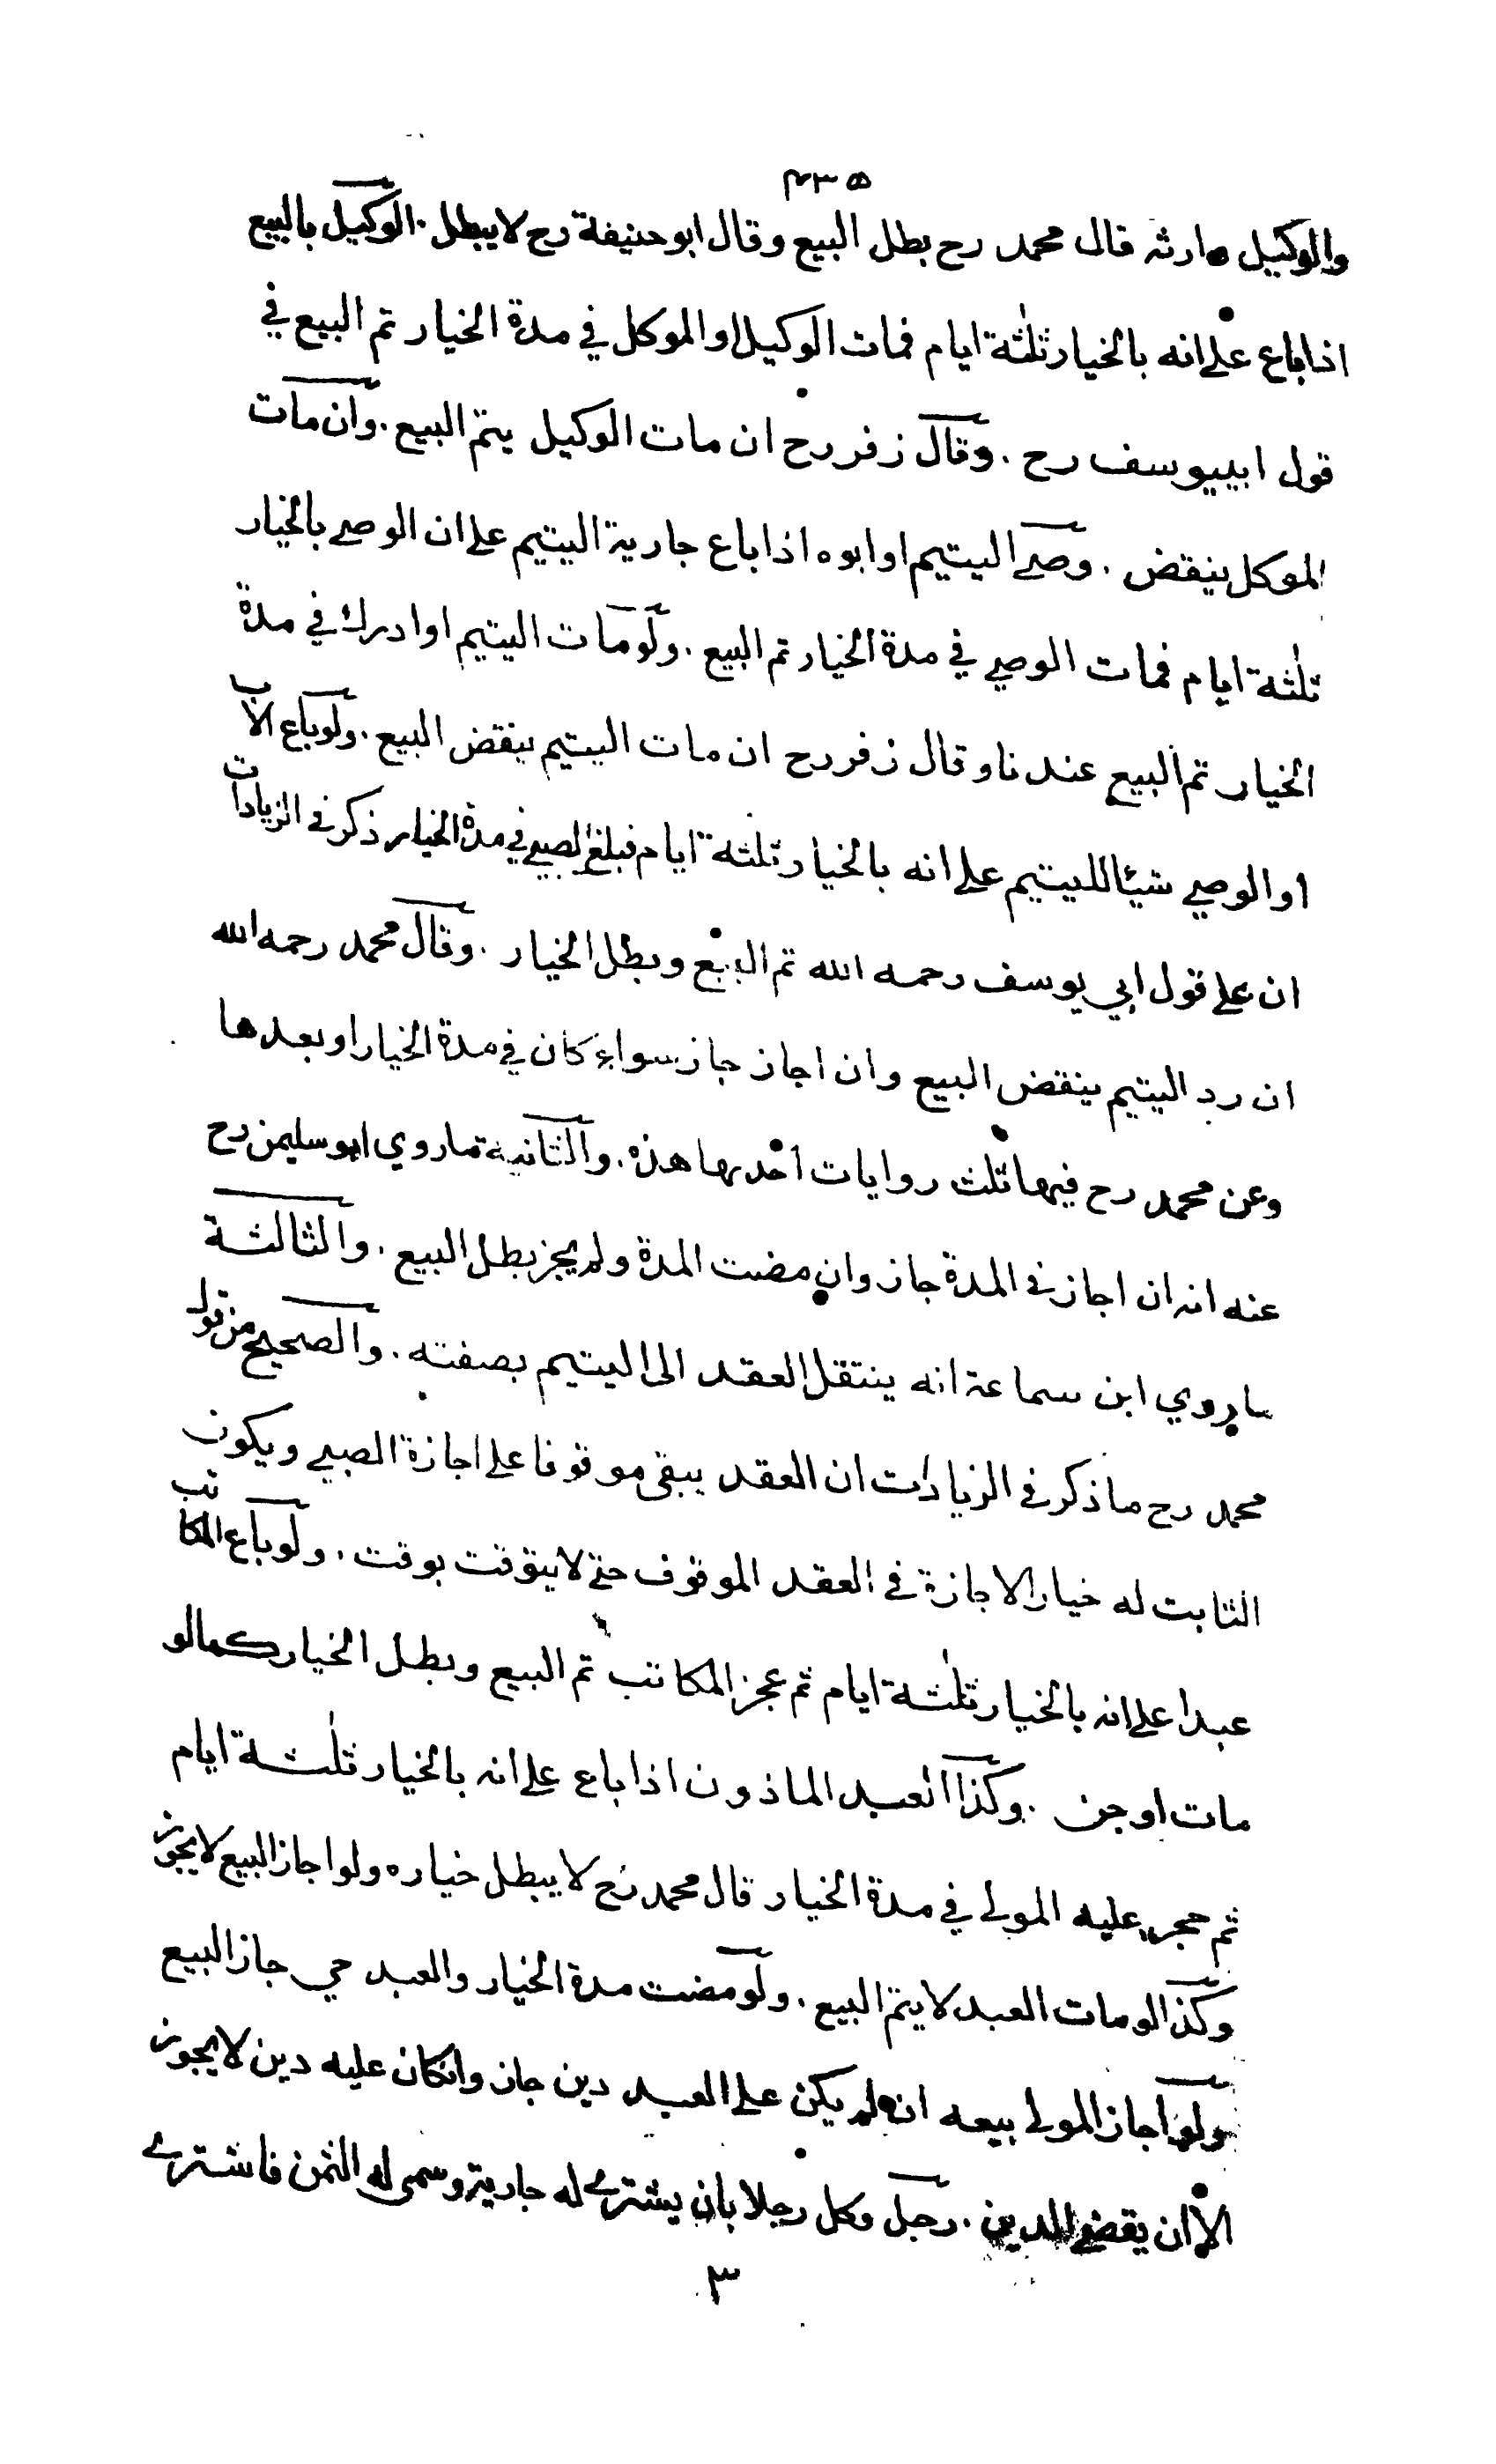 ٤٣٥
والوكيل وارثه قال محمد رح بطل البيع وقال ابو حنيفة رح لا يبطل . الوكيل بالبيع
اذا باع على انه بالخيار ثلثة ايام فمات الوكيل او الموكل في مدة الخيار تم البيع في
قول ابييوسف رح . وقال زفر رح ان مات الوكيل يتم البيع . وان مات
الموكل ينقض . وصي اليتيم او ابوه اذا باع جارية اليتيم على ان الوصي بالخيار
ثلثة ايام فمات الوصي في مدة الخيار تم البيع . ولو مات اليتيم او ادرك في مدة
الخيار تم البيع عندنا وقال زفر رح ان مات اليتيم ينقض البيع . ولو باع الاب
او الوصي شيئا لليتيم على انه بالخيار ثلثة ايام فبلغ الصبي في مدة الخيار ذكر في الزيادات
ان على قول ابي يوسف رحمه الله تم البيع وبطل الخيار . وقال محمد رحمه الله
ان رد اليتيم ينقض البيع وان اجاز جاز سواء كان في مدة الخيار او بعدها
وعن محمد رح فيها ثلث روايات احديها هذه . والثانية ما روي ابو سليمن رح
عنه انه ان اجاز في المدة جاز وان مضت المدة ولم يجز بطل البيع . والثالثة
ما روي ابن سماعة انه ينتقل العقد الى اليتيم بصفته . والصحيح من قول
محمد رح ما ذكر في الزيادات ان العقد يبقى موقوفا على اجازة الصبي ويكون
الثابت له خيار الاجازة في العقد الموقوف حتى لا يتوقت بوقت . ولو باع المكاتب
عبدا على انه بالخيار ثلثة ايام ثم عجز المكاتب تم البيع وبطل الخيار كما لو
مات او جن . وكذا العبد الماذون اذا باع على انه بالخيار ثلثة ايام
ثم حجر عليه المولى في مدة الخيار قال محمد رح لا يبطل خياره ولو اجاز البيع لا يجوز
وكذا لو مات العبد لا يتم البيع . ولو مضت مدة الخيار والعبد حي جاز البيع
ولو اجاز المولى بيعه ان لم يكن على العبد دين جاز وانكان عليه دين لا يجوز
الا ان يقضي الدين . رجل وكل رجلا بان يشتري له جارية وسمى له الثمن فاشترى
٣